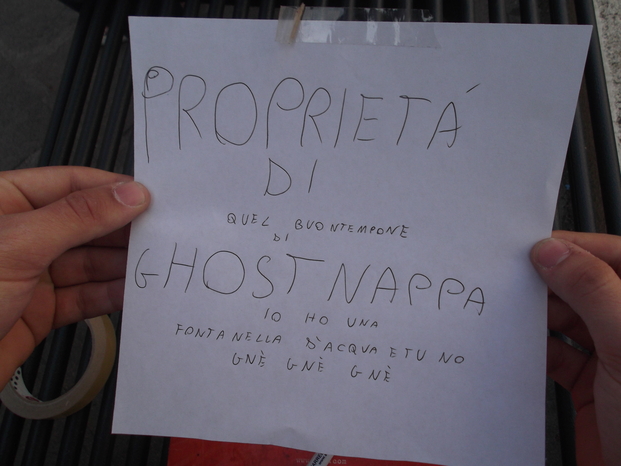 PROPRIETÁ
DI
QUEL BUONTEMPONE
DI
GHOST NAPPA
IO HO UNA
FONTANELLA D'ACQUA E TU NO
GNÈ GNÈ GNÈ